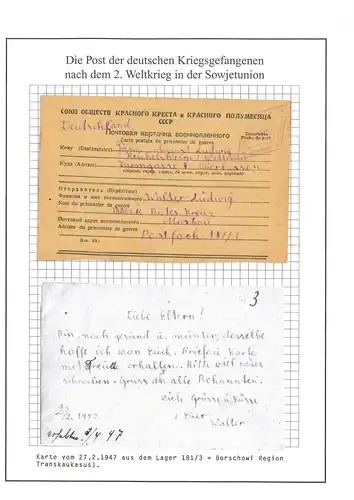 Die Post der deutschen Kriegsgefangenen
nach dem 2. Weltkrieg in der Sowjetunion
СОЮЗ ОБЩЕСТВ КРАСНОГО КРЕСТА и КРАСНОГО ПОЛУМЕСЯЦА
СССР
Deutschland
Почтовая карточка военнопленного
Carte postale du prisonnier de guerre
Кому (Destinataire) Ludwig
Куда (Adresse)
Отправитель (Expéditeur)
Фамилия и имя военнопленного Walter Ludwig
Nom du prisonnier de guerre
Rotes Kreuz
Почтовый адрес военнопленного Moskau
Adresse du prisonnier de guerre
Postfach 181/3
3
Liebe Eltern!
Bin noch gesund u. munter, dasselbe
hoffe ich von Euch. Brief u. Karte
mit Freude erhalten. Bitte viel
schreiben. Gruss an alle Bekannten.
Viele Grüsse u. Küsse
1947. Euer
Walter
47
Karte vom 27.2.1947 aus dem Lager 181/3 = Borschowi Region
Transkaukasus).